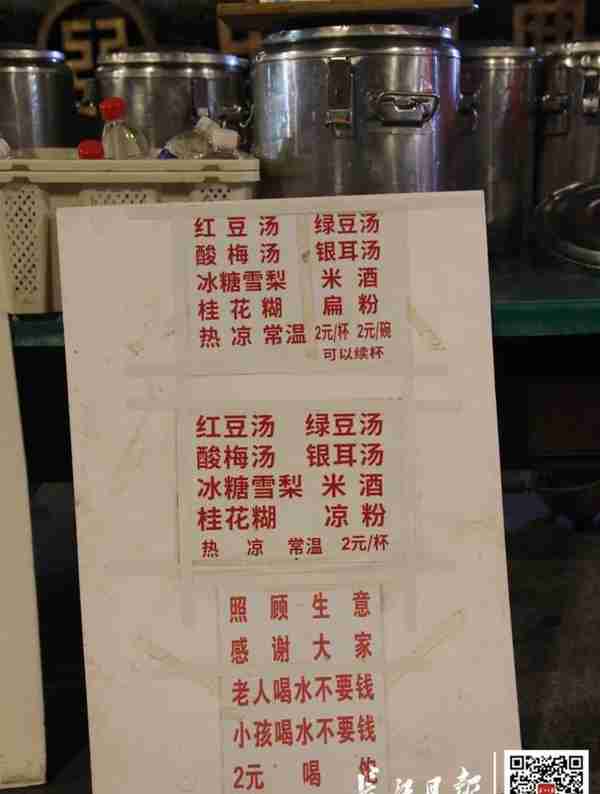 红豆汤 绿豆汤
酸梅汤 银耳汤
冰糖雪梨 米酒
桂花糊 扁粉
热 凉 常温 2元/杯 2元/碗
可以续杯
红豆汤 绿豆汤
酸梅汤 银耳汤
冰糖雪梨 米酒
桂花糊 凉粉
热 凉 常温 2元/杯
照顾生意
感谢大家
老人喝水不要钱
小孩喝水不要钱
2元喝饱
长江日报